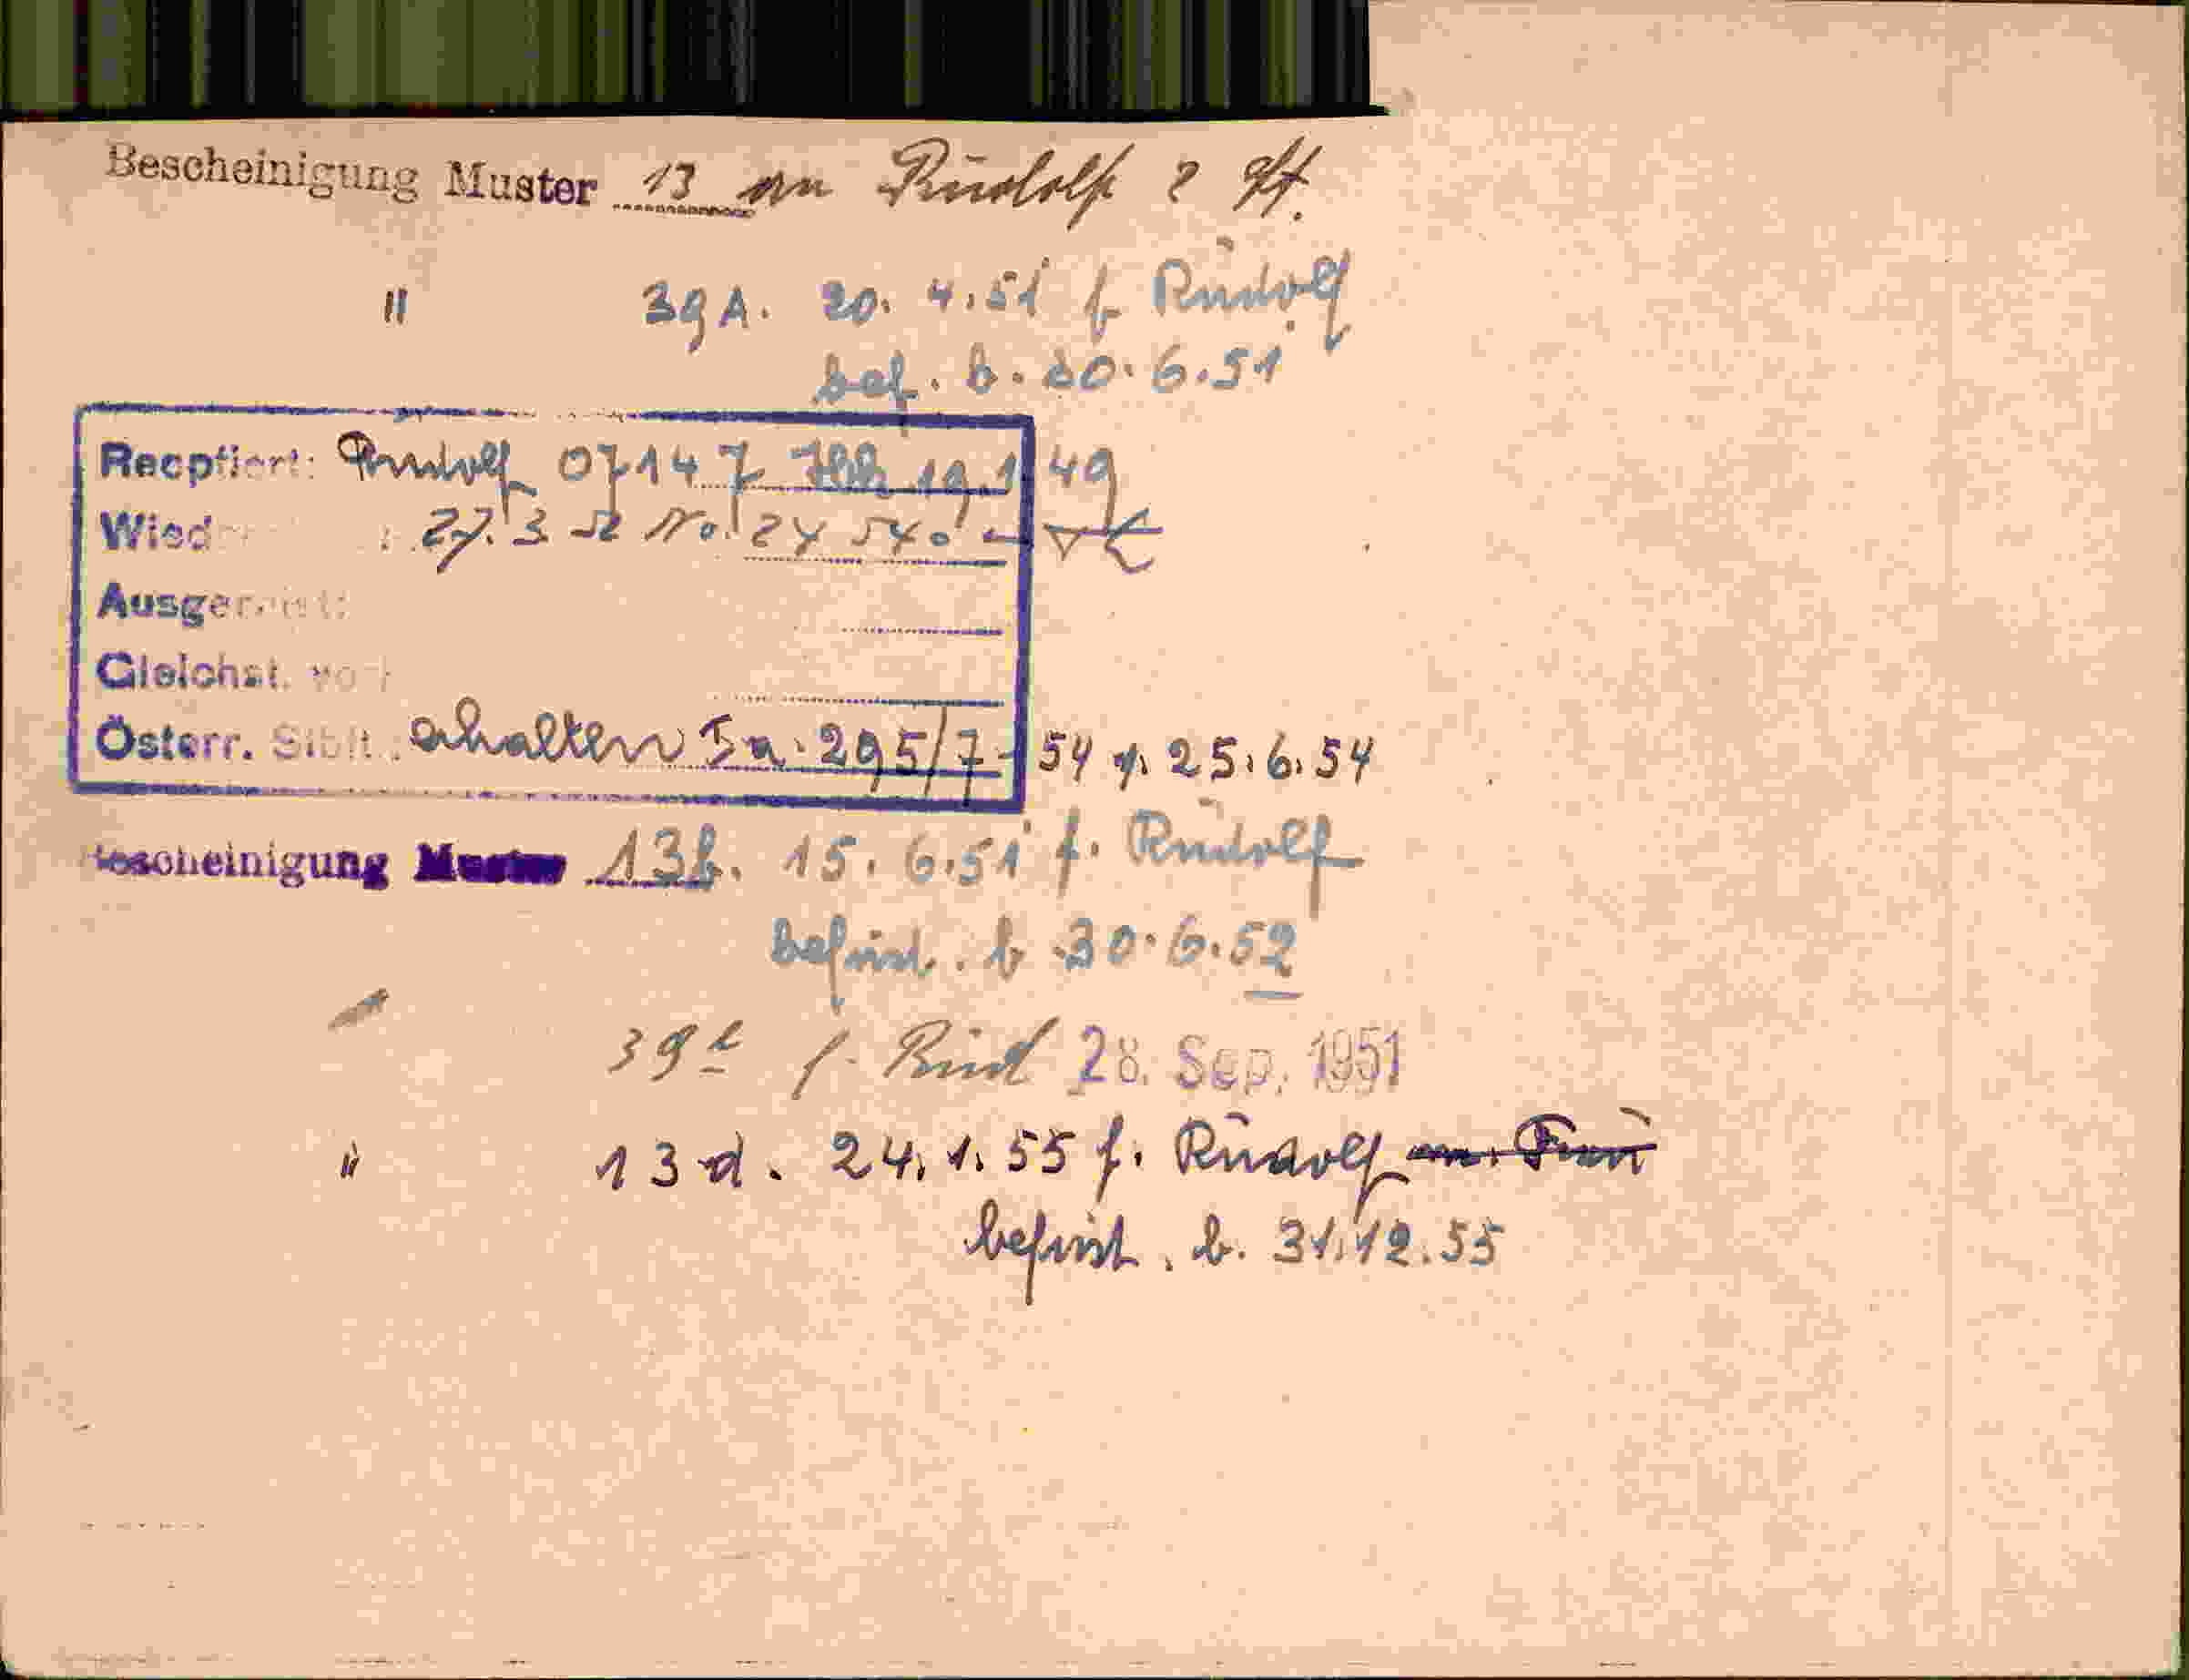 Bescheinigung Muster 13 an Rudolf
" 39A. 20. 4.51 f Rudolf
bef. b. 30.6.51
Recptiert: Rudolf 07147 19.1 49
Wied : 27.3
Ausgereist:
Gleichst. vor
Österr. Stbst. erhalten Ia. 295/7-54 v. 25.6.54
Bescheinigung Muster 13b. 15.6.51 f. Rudolf
befrist. b 30.6.52
39 f. Rud 28. Sep. 1951
" 13 d. 24.1.55 f. Rudolf m. Frau
befrist. b. 31.12.55